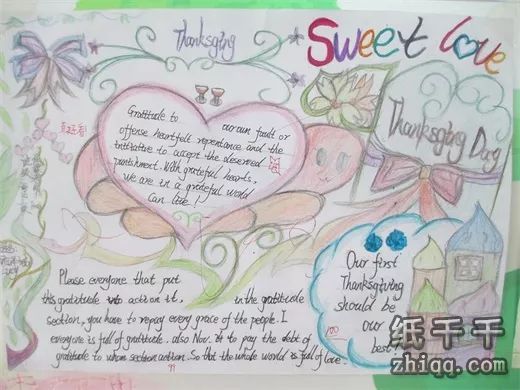 Thanksging
Sweet love
Gratitude to our own fault or
offense heartfelt repentance and the
initiative to accept the deserved
punishment. With grateful hearts,
we are in a grateful world
can live!
Thanksging Day
Our first
Thanksgiving
should be
our
best!
Please everyone that put
this gratitude into action it, in the gratitude
section, you have to repay every grace of the people. I
everyone is full of gratitude. also Nov. 24 to pay the debt of
gratitude to whom section action. So that the whole world is full of love.
纸千千
zhiqq.com